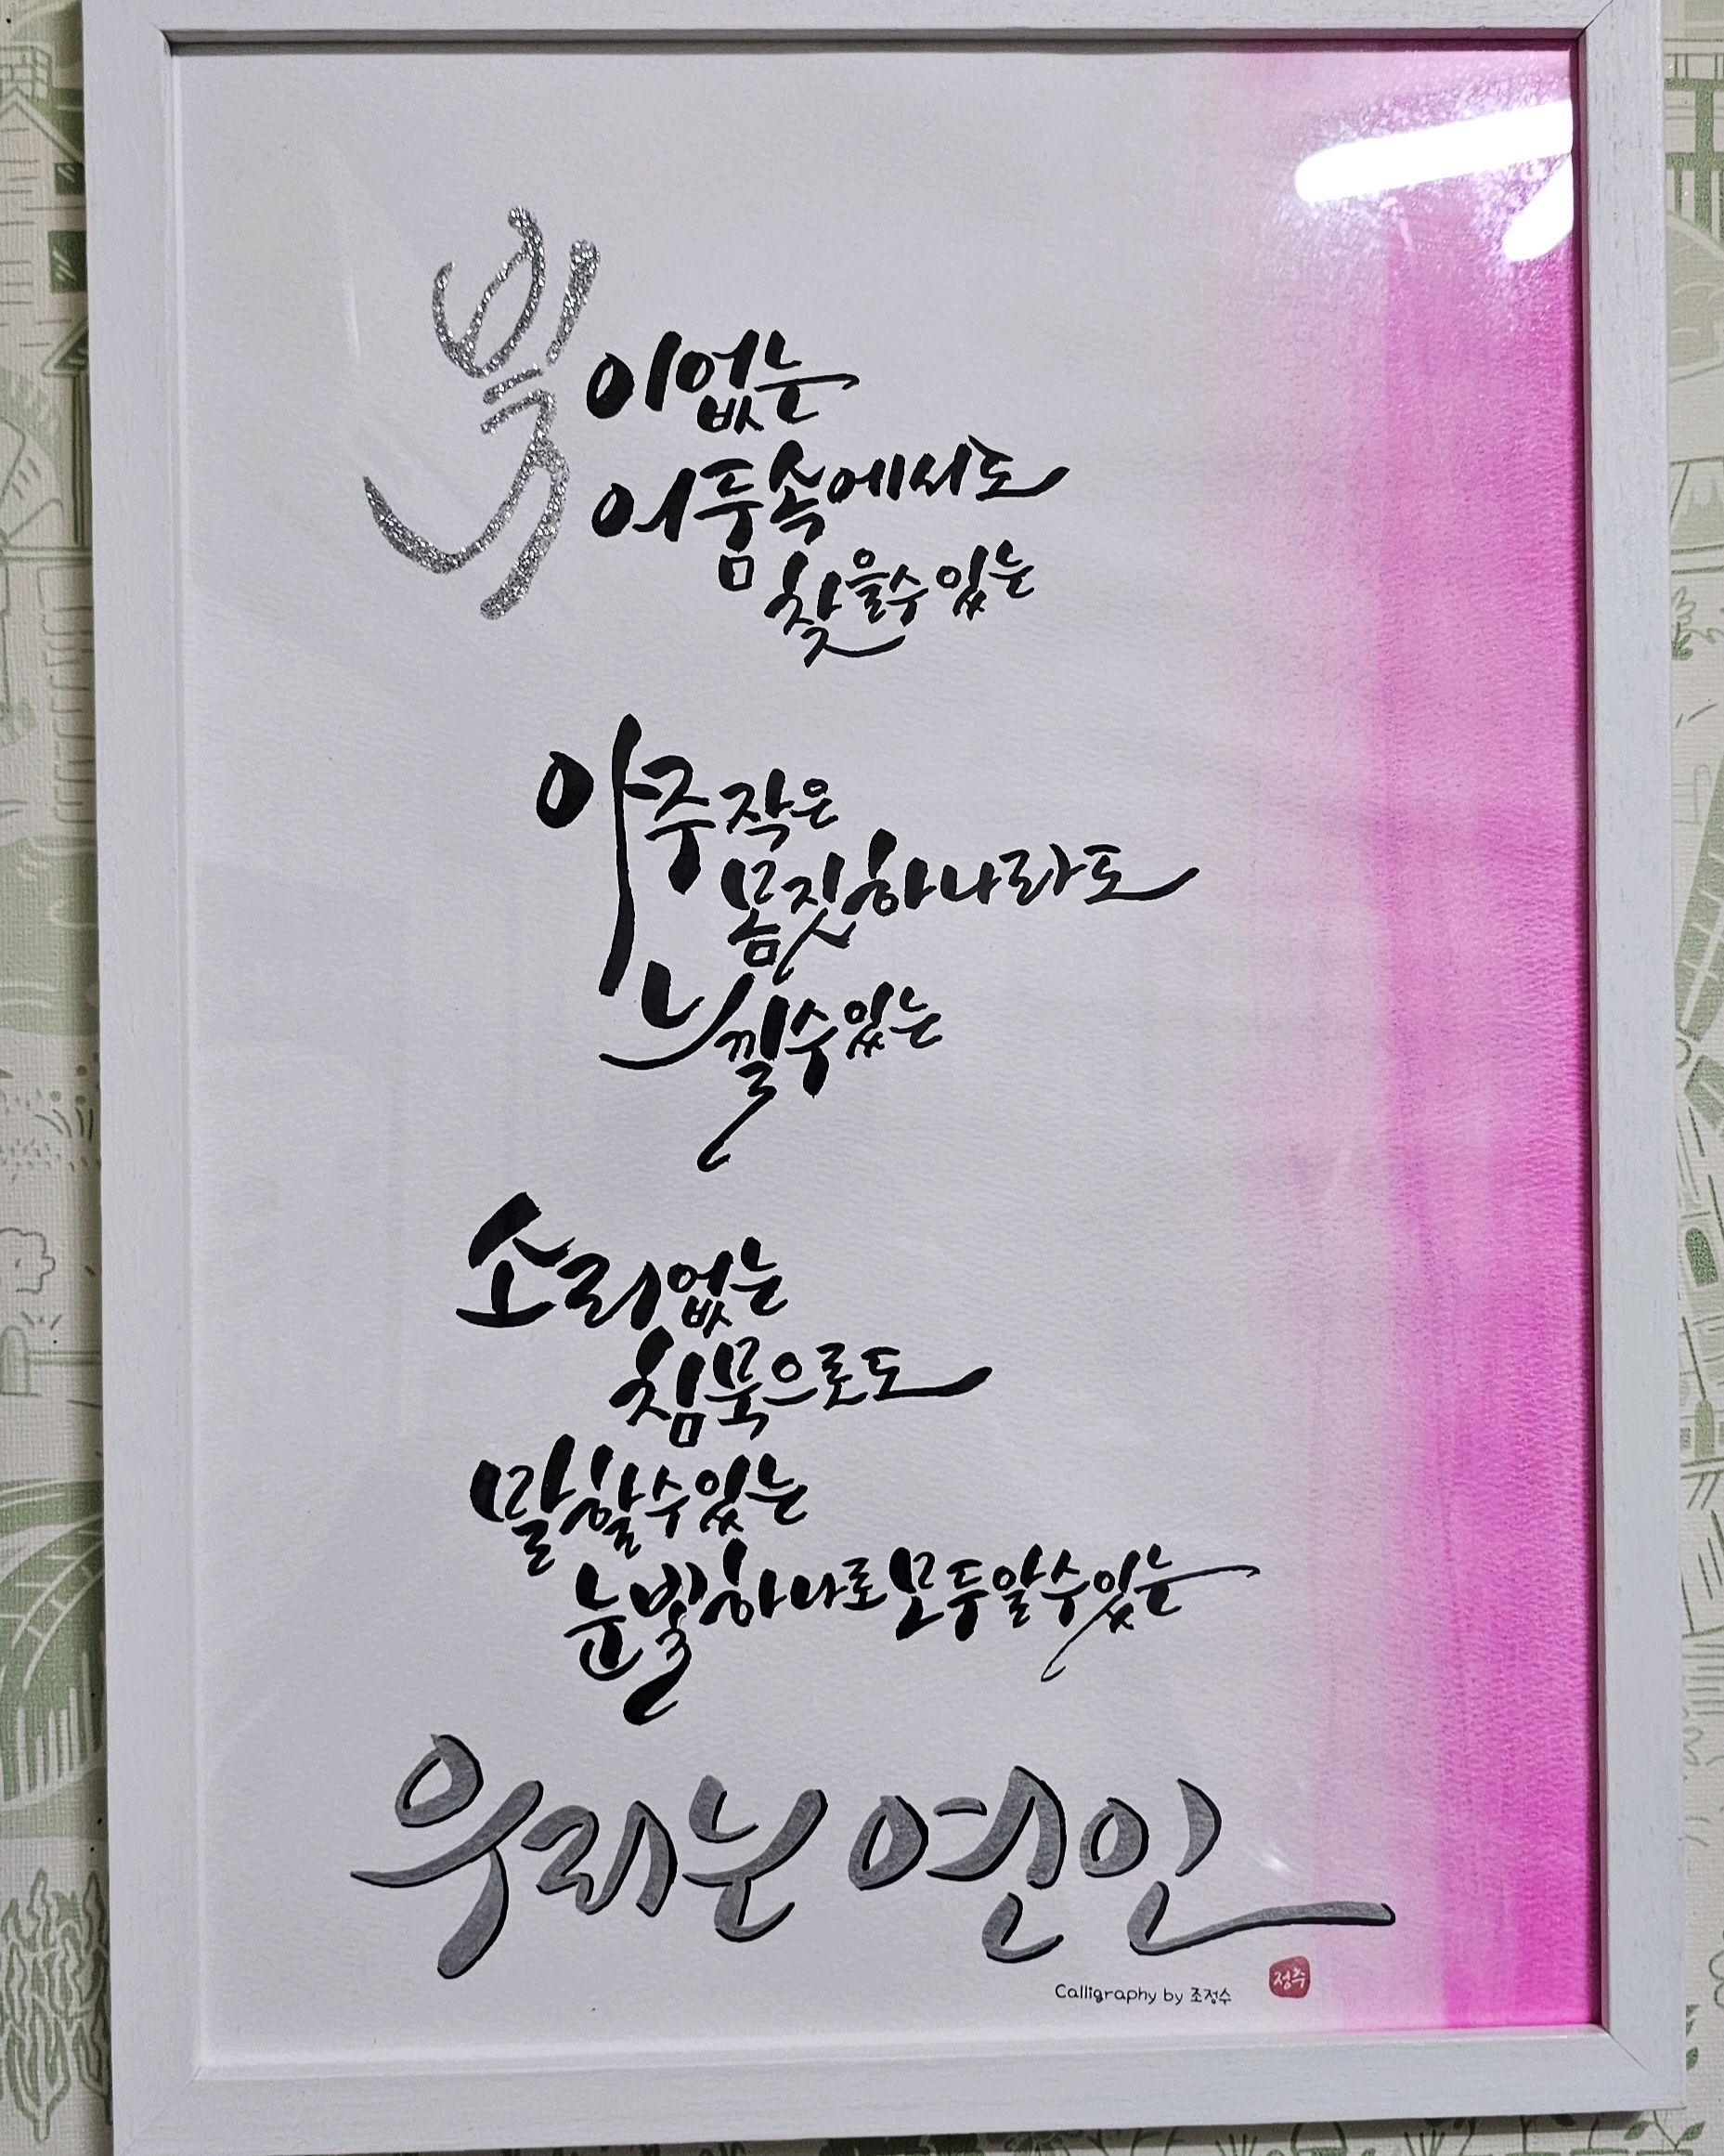 빛이없는
어둠속에서도
찾을수있는
아주작은
몸짓하나라도
느낄수있는
소리없는
침묵으로도
말할수있는
눈빛하나로모두알수있는
우리는 연인
Calligraphy by 조정수
정수